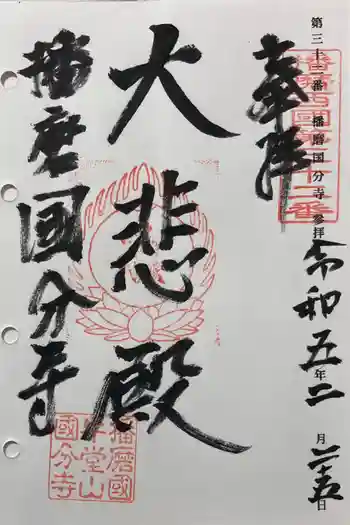 第三十二番 播磨国分寺 参拝
令和五年二月二十五日
奉拝
播磨西國第三十二番
大悲殿
播磨國分寺
播磨國
牛堂山
國分寺